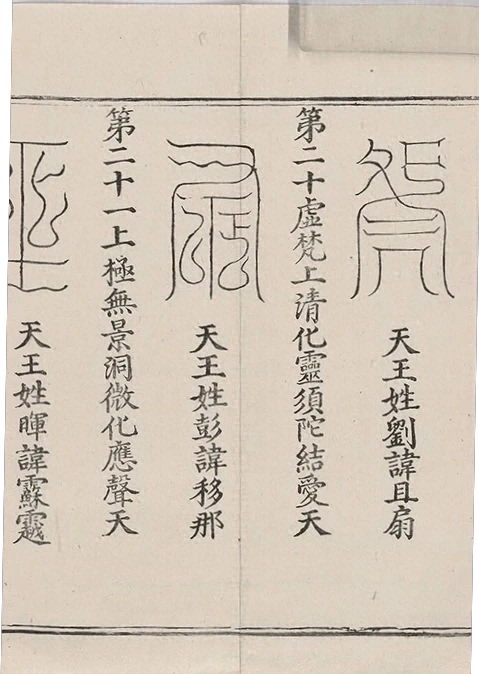 天王姓劉諱且扇
第二十虛梵上清化靈須陀結愛天
天王姓彭諱移那
第二十一上極無景洞微化應聲天
天王姓暉諱